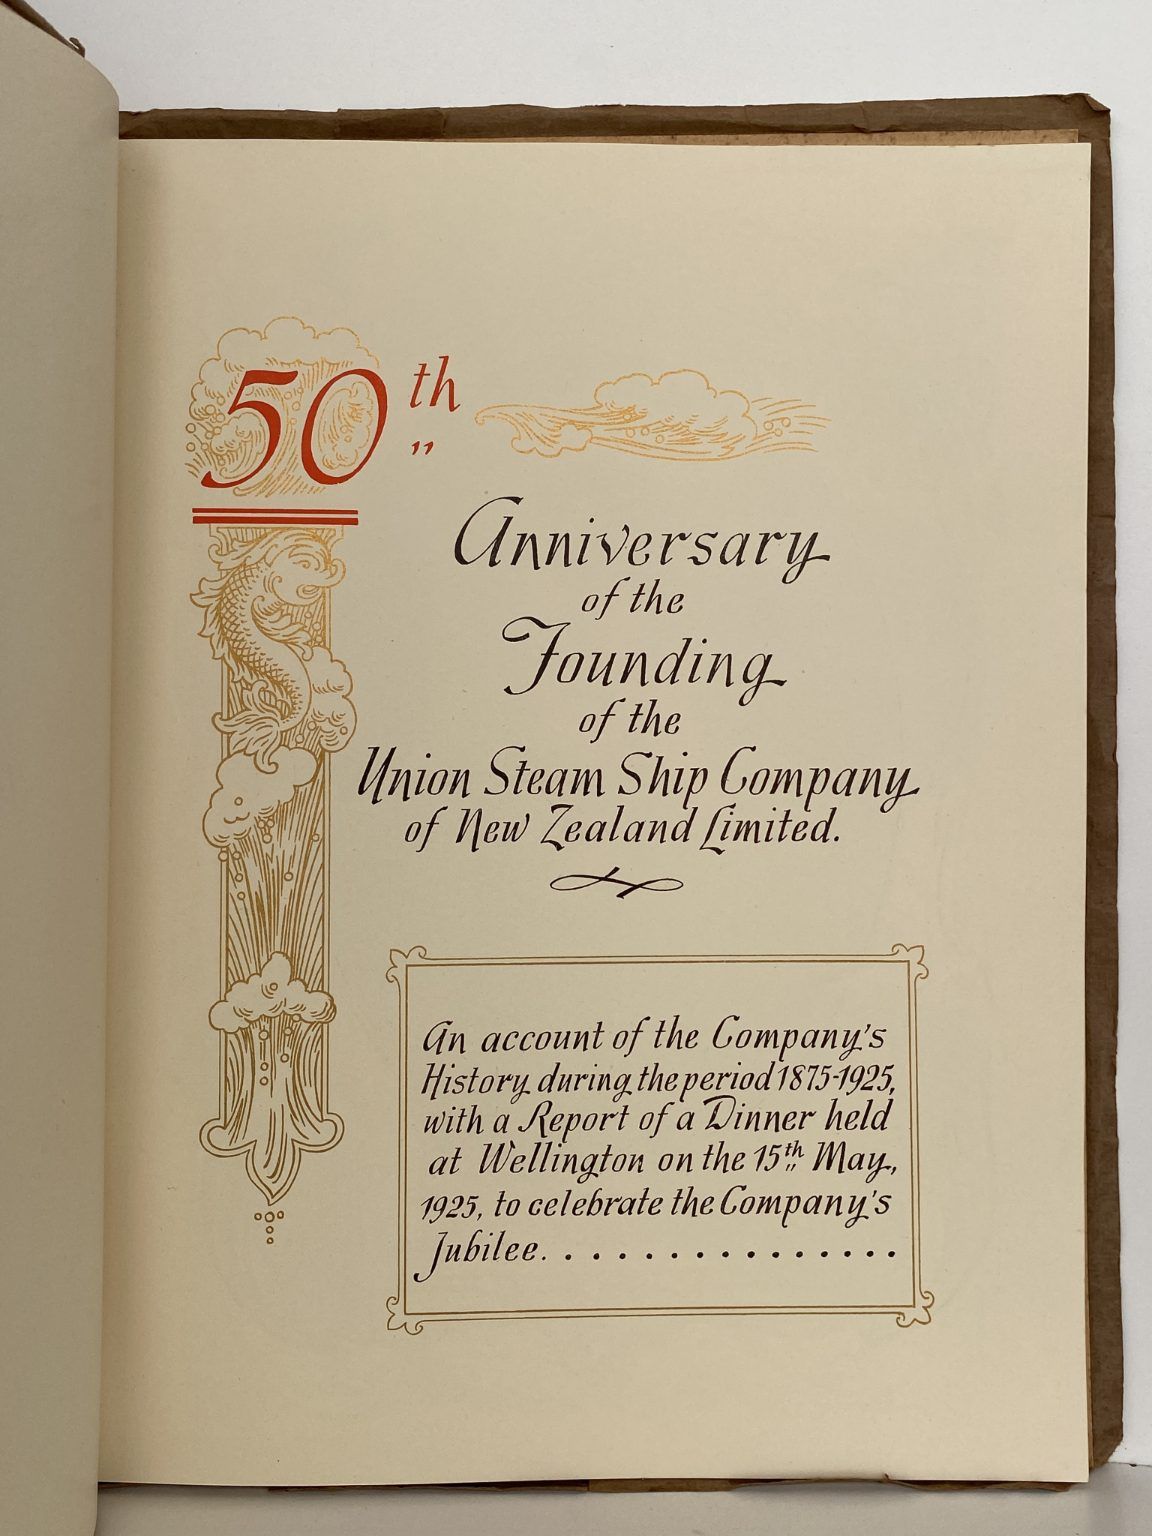 50th
Anniversary
of the
Founding
of the
Union Steam Ship Company
of New Zealand Limited.
An account of the Company's
History during the period 1875-1925,
with a Report of a Dinner held
at Wellington on the 15th May,
1925, to celebrate the Company's
Jubilee. . . . . . . . . . . . . . . .